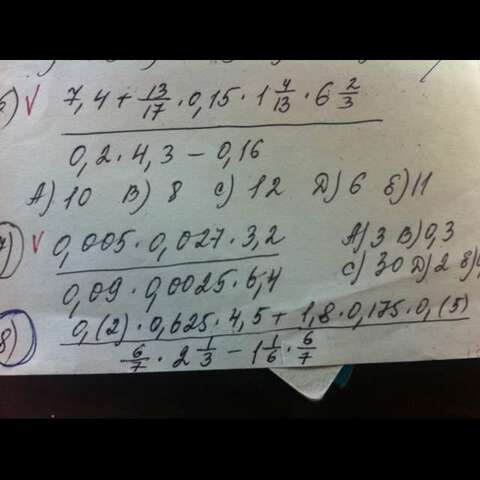 6) V 7,4 + 13/17 · 0,15 · 1 4/13 · 6 2/3
0,2 · 4,3 - 0,16
A) 10 B) 8 C) 12 Д) 6 E) 11
7) V 0,005 · 0,027 · 3,2
0,09 · 0,0025 · 6,4
A) 3 B) 0,3
C) 30 Д) 2 E)
8) 0,(2) · 0,625 · 4,5 + 1,8 · 0,175 · 0,(5)
6/7 · 2 1/3 - 1 1/6 · 6/7